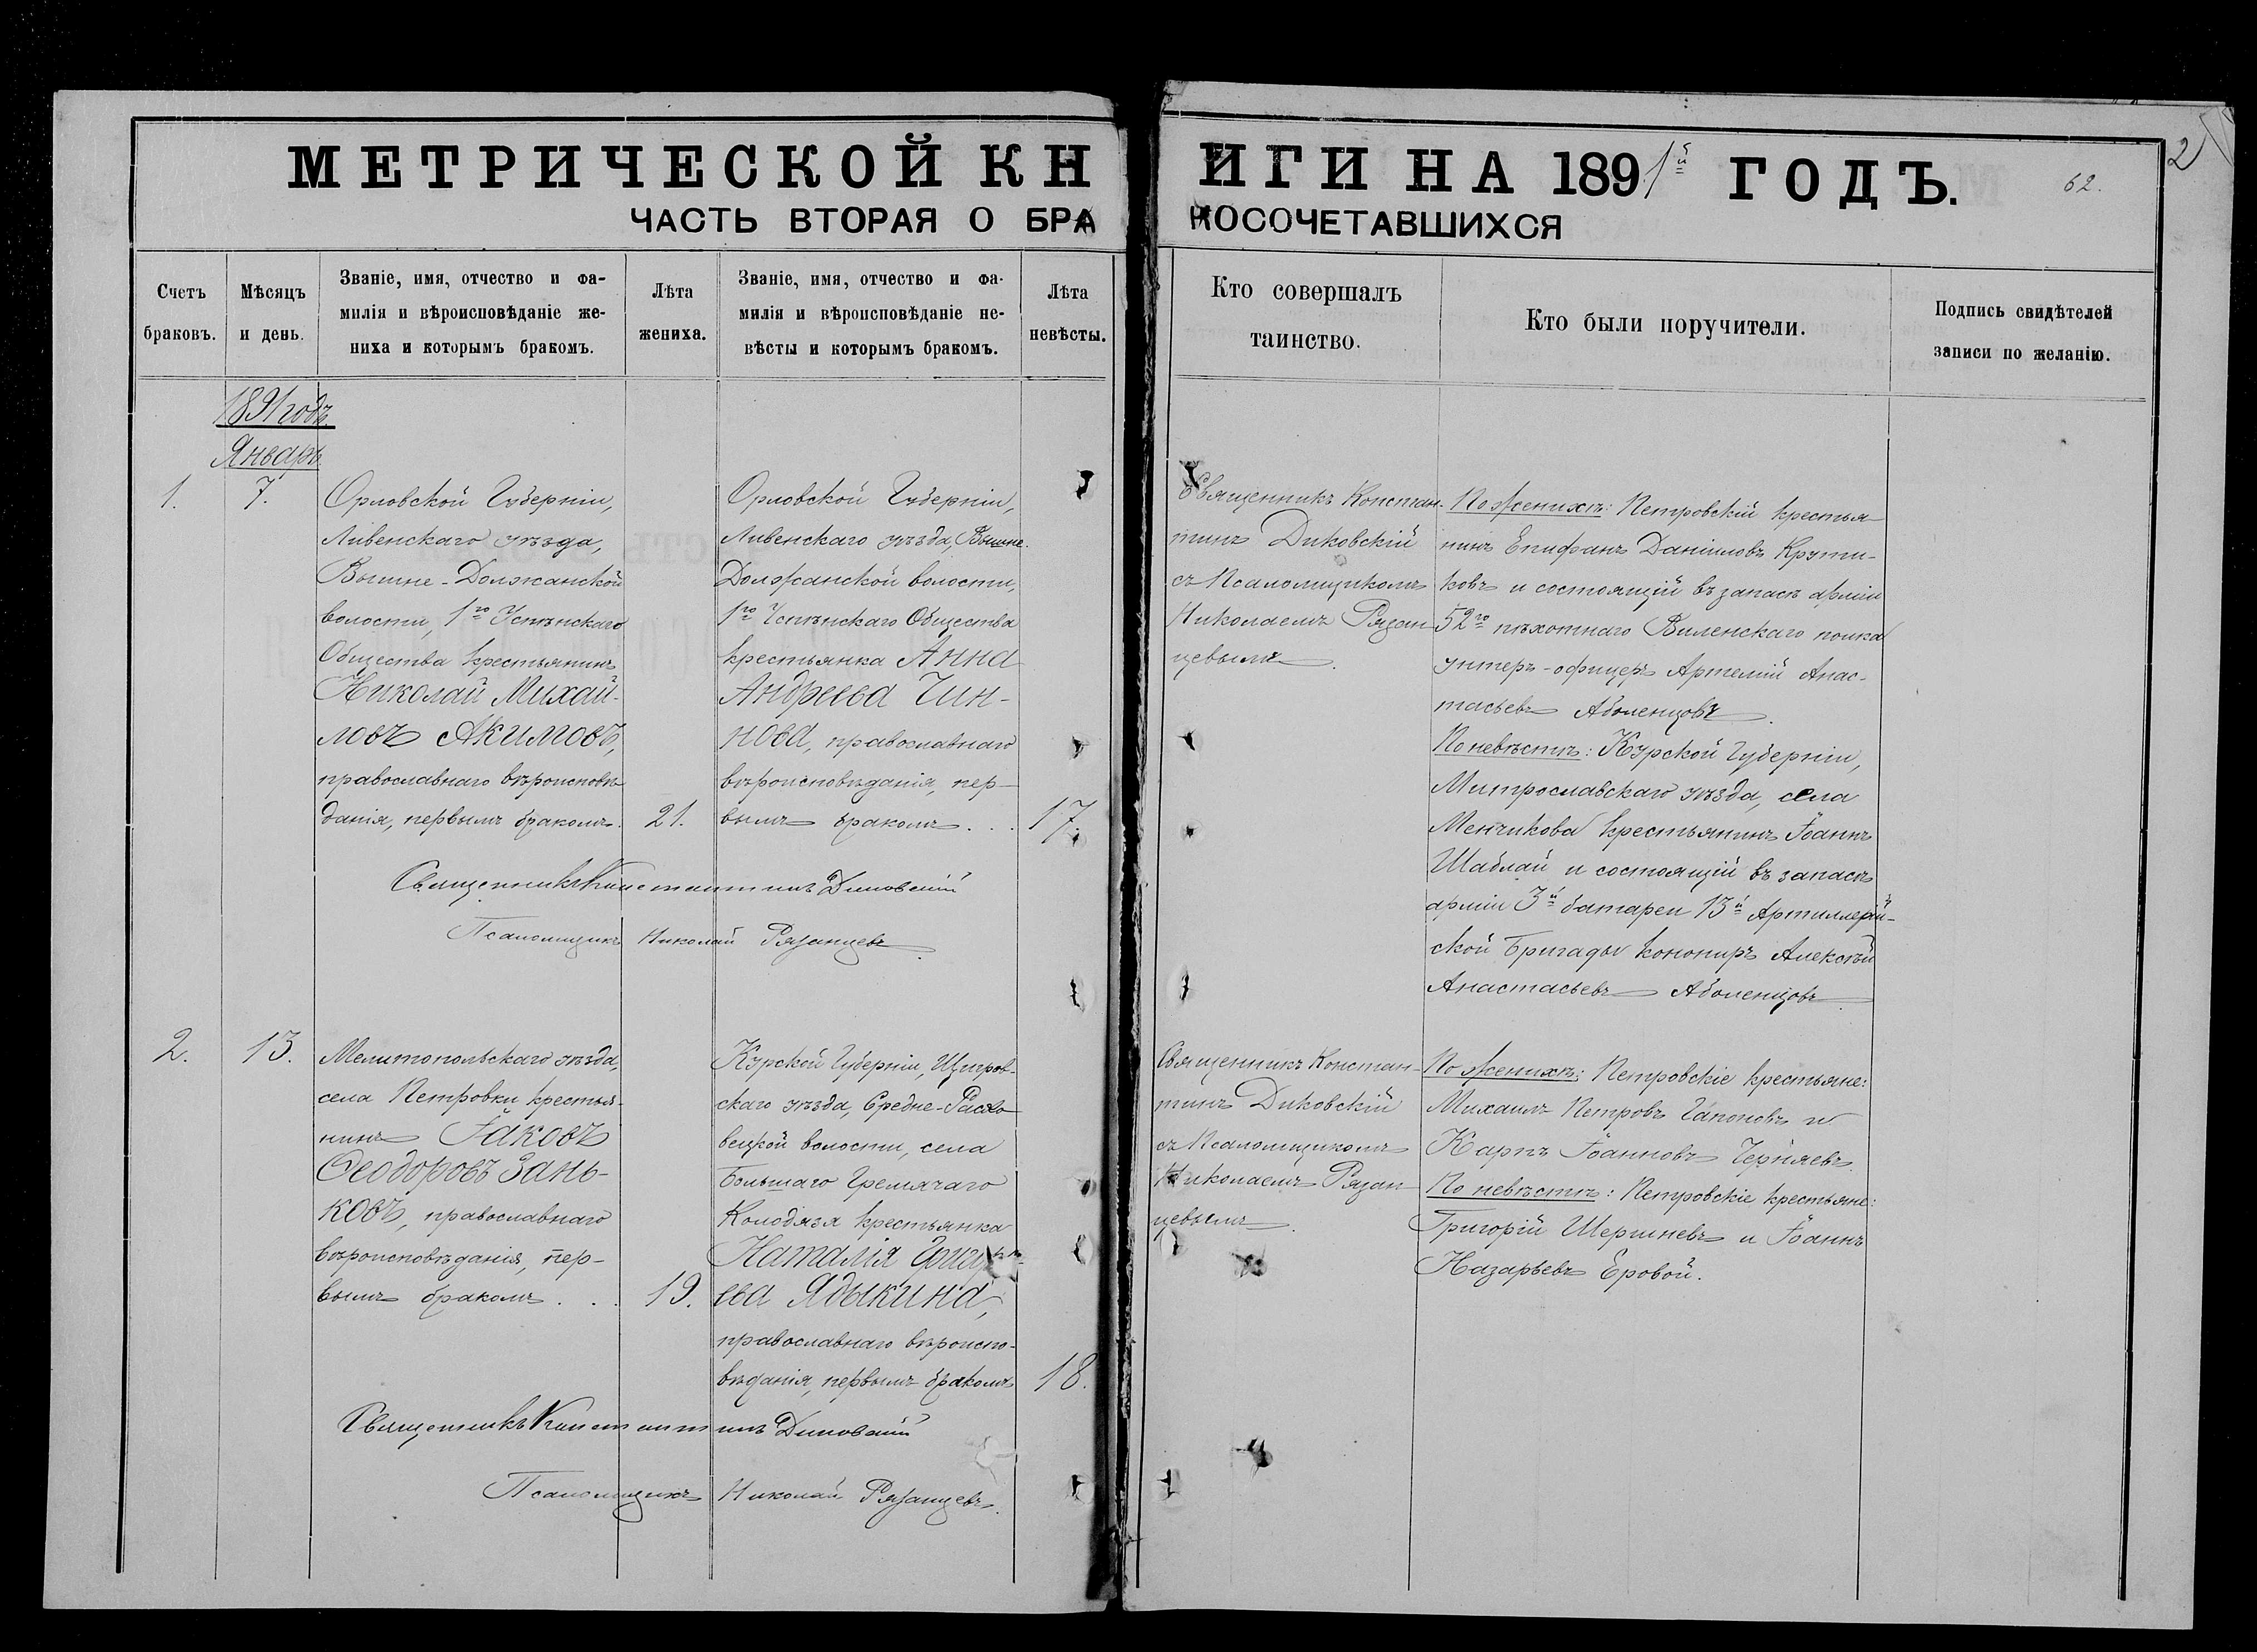 МЕТРИЧЕСКОЙ КНИГИ НА 1891й ГОДЪ.
62.
2
ЧАСТЬ ВТОРАЯ О БРАКОСОЧЕТАВШИХСЯ
Счетъ
браковъ.
Мѣсяцъ
и день.
Званіе, имя, отчество и фа-
милія и вѣроисповѣданіе же-
ниха и которымъ бракомъ.
Лѣта
жениха.
Званіе, имя, отчество и фа-
милія и вѣроисповѣданіе не-
вѣсты и которымъ бракомъ.
Лѣта
невѣсты.
Кто совершалъ
таинство.
Кто были поручители.
Подпись свидѣтелей
записи по желанію.
1891 годъ.
Январь
1.
7.
Орловской Губерніи,
Ливенскаго уѣзда,
Вышне-Должанской
волости, 1го Успѣнскаго
Общества крестьянинъ
Николай Михай-
ловъ Акимовъ,
православнаго вѣроисповѣ
данія, первымъ бракомъ.
21.
Орловской Губерніи,
Ливенскаго уѣзда, Вышне-
Должанской волости,
1го Успѣнскаго Общества
крестьянка Анна
Андреева Чин-
нова, православнаго
вѣроисповѣданія, пер-
вымъ бракомъ...
17.
Священникъ Констан-
тинъ Диковскій
съ Псаломщикомъ
Николаемъ Рязан-
цевымъ.
По женихѣ: Петровскій крестья-
нинъ Епифанъ Даніиловъ Крути-
ковъ и состоящій въ запасѣ арміи
52го пѣхотнаго Виленскаго полка
унтеръ-офицеръ Артемій Анас-
тасьевъ Аболенцовъ.
По невѣстѣ: Курской Губерніи,
Митрославскаго уѣзда, села
Менчикова крестьянинъ Іоаннъ
Шаблай и состоящій въ запасѣ
арміи 3й батареи 13й Артиллерій-
ской Бригады конониръ Алексѣй
Анастасьевъ Аболенцовъ.
Священникъ Константинъ Диковскій
Псаломщикъ Николай Рязанцевъ.
2.
13.
Мелитопольскаго уѣзда,
села Петровки крестья-
нинъ Іаковъ
Ѳеодоровъ Зань-
ковъ, православнаго
вѣроисповѣданія, пер-
вымъ бракомъ...
19.
Курской Губерніи, Щигров-
скаго уѣзда, Средне-Расхо
вецкой волости, села
Большаго Гремячаго
Колодязя крестьянка
Наталія Григорь-
ева Ядыкина,
православнаго вѣроиспо-
вѣданія, первымъ бракомъ
18.
Священникъ Констан-
тинъ Диковскій
съ Псаломщикомъ
Николаемъ Рязан-
цевымъ.
По женихѣ: Петровскіе крестьяне:
Михаилъ Петровъ Гапоновъ и
Карпъ Іоанновъ Черняевъ.
По невѣстѣ: Петровскіе крестьяне:
Григорій Шершневъ и Іоаннъ
Назарьевъ Еровой.
Священникъ Константинъ Диковскій
Псаломщикъ Николай Рязанцевъ.